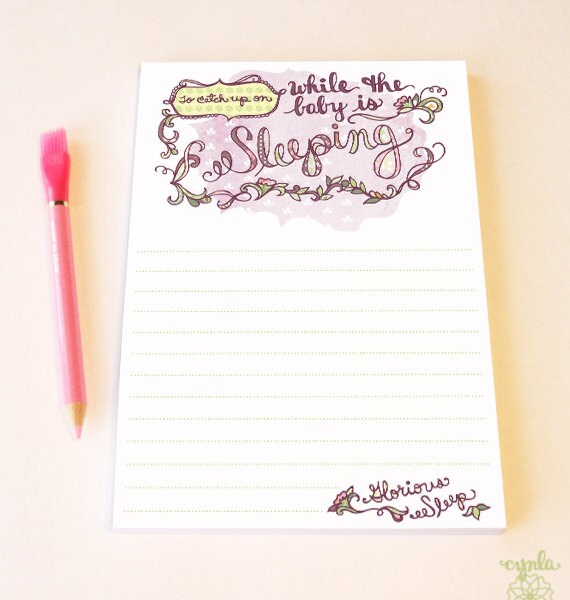 To catch up on
while the
baby is
Sleeping
Glorious
Sleep
cynla